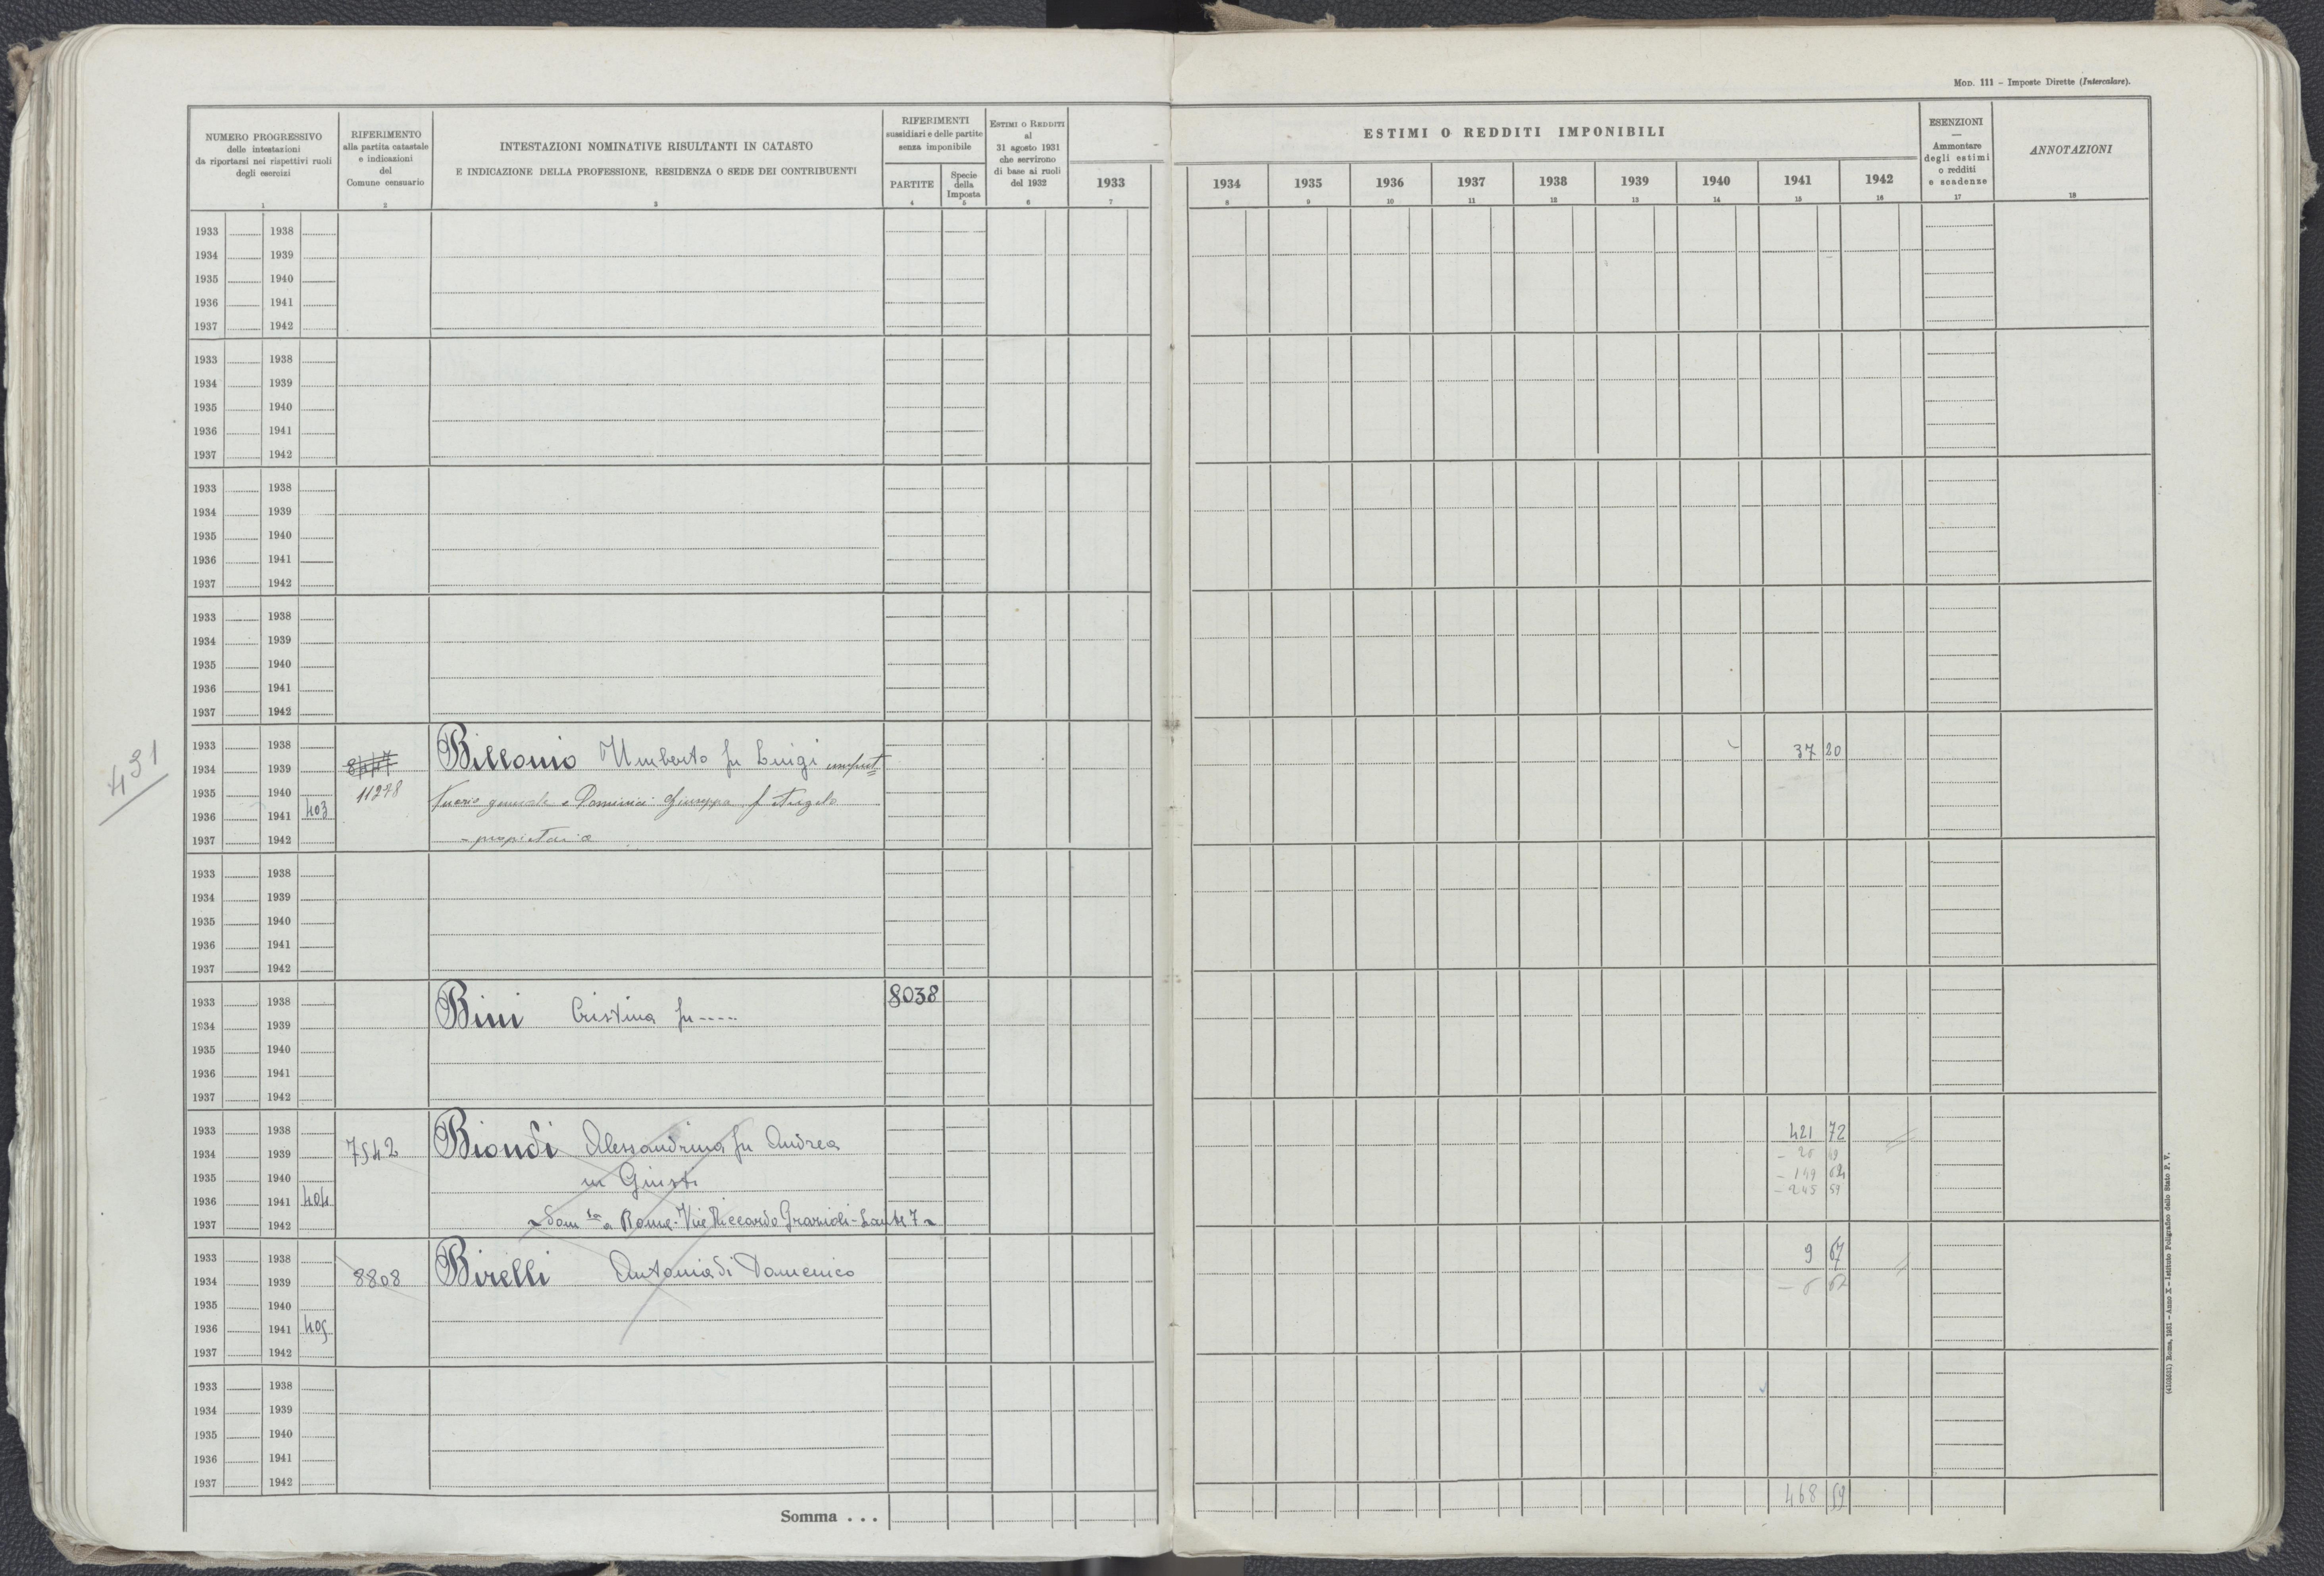 MOD. 111 – Imposte Dirette (Intercalare).
NUMERO PROGRESSIVO
delle intestazioni
da riportarsi nei rispettivi ruoli
degli esercizi
1
RIFERIMENTO
alla partita catastale
e indicazioni
del
Comune censuario
2
INTESTAZIONI NOMINATIVE RISULTANTI IN CATASTO
E INDICAZIONE DELLA PROFESSIONE, RESIDENZA O SEDE DEI CONTRIBUENTI
3
RIFERIMENTI
sussidiari e delle partite
senza imponibile
PARTITE
4
Specie
della
Imposta
5
ESTIMI O REDDITI
al
31 agosto 1931
che servirono
di base ai ruoli
del 1932
6
1933
7
ESTIMI O REDDITI IMPONIBILI
1934 1935 1936 1937 1938 1939 1940 1941 1942
8 9 10 11 12 13 14 15 16
ESENZIONI
—
Ammontare
degli estimi
o redditi
e scadenze
17
ANNOTAZIONI
18
1933 1938
1934 1939
1935 1940
1936 1941
1937 1942
1933 1938
1934 1939
1935 1940
1936 1941
1937 1942
1933 1938
1934 1939
1935 1940
1936 1941
1937 1942
1933 1938
1934 1939
1935 1940
1936 1941
1937 1942
431
1933 1938 37 20
1934 1939 Billonio Umberto fu Luigi
1935 1940 11278 generale e Dominici Giuseppa f Angelo
1936 1941 403
1937 1942 - proprietaria
1933 1938
1934 1939
1935 1940
1936 1941
1937 1942
1933 1938 8038
1934 1939 Bini Cristina fu -----
1935 1940
1936 1941
1937 1942
1933 1938 421 72
1934 1939 7542 Biondi Alessandrina fu Andrea
1935 1940 in Giusti
1936 1941 404
1937 1942 Dom ta a Roma - Via Riccardo Grazioli - Lante 7
1933 1938 9 67
1934 1939 8808 Birelli Antonia di Domenico
1935 1940
1936 1941 405
1937 1942
1933 1938
1934 1939
1935 1940
1936 1941
1937 1942
Somma . . . 468 59
(4103631) Roma, 1931 – Anno X – Istituto Poligrafico dello Stato P. V.